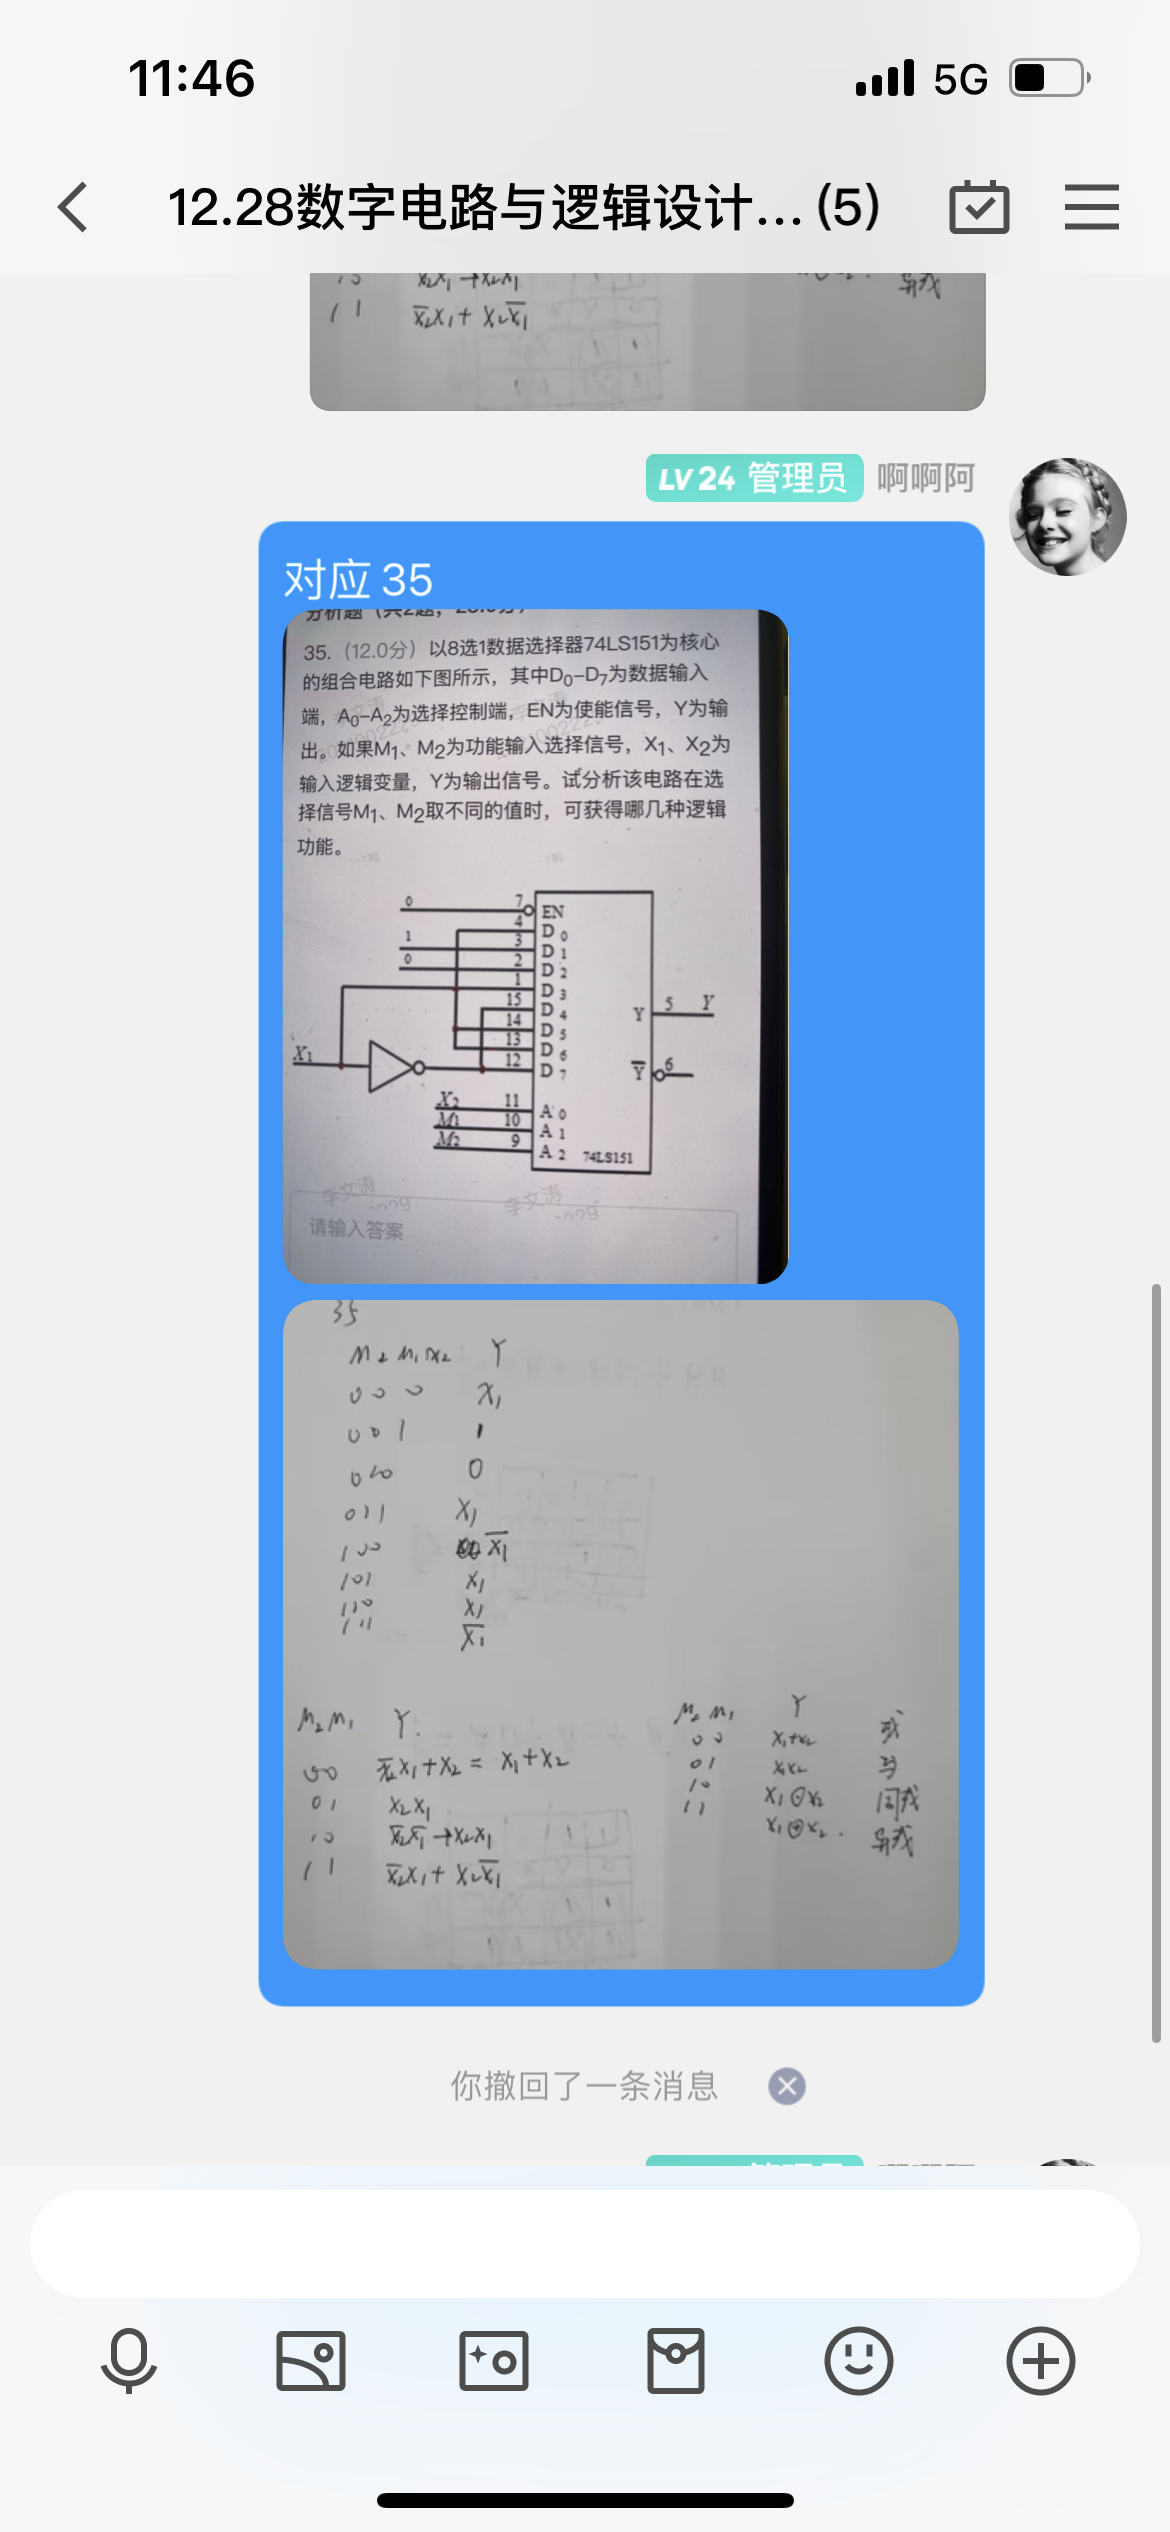 11:46
5G
12.28数字电路与逻辑设计... (5)
1 1 x̅₂x₁ + x₂x̅₁
异或
LV 24 管理员 啊啊阿
对应 35
35.（12.0分）以8选1数据选择器74LS151为核心
的组合电路如下图所示，其中D₀-D₇为数据输入
端，A₀-A₂为选择控制端，EN为使能信号，Y为输
出。如果M₁、M₂为功能输入选择信号，X₁、X₂为
输入逻辑变量，Y为输出信号。试分析该电路在选
择信号M₁、M₂取不同的值时，可获得哪几种逻辑
功能。
0 7 EN
4 D 0
1 3 D 1
0 2 D 2
1 D 3
15 D 4
14 D 5
13 D 6
12 D 7
X₁
Y 5 Y
Y̅ 6
X₂ 11 A 0
M₁ 10 A 1
M₂ 9 A 2
74LS151
李文涛 李文涛
请输入答案
35
M₂ M₁ X₂ Y
0 0 0 X₁
0 0 1 1
0 1 0 0
0 1 1 X₁
1 0 0 X̅₁
1 0 1 X₁
1 1 0 X₁
1 1 1 X̅₁
M₂ M₁ Y.
0 0 x̅₂x₁ + x₂ = x₁ + x₂
0 1 x₂x₁
1 0 x̅₂x̅₁ + x₂x₁
1 1 x̅₂x₁ + x₂x̅₁
M₂ M₁ Y
0 0 x₁+x₂ 或
0 1 x₁x₂ 与
1 0 x₁⊙x₂ 同或
1 1 x₁⊕x₂. 异或
你撤回了一条消息